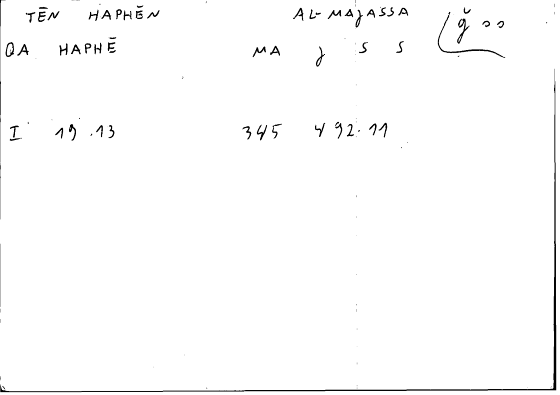 TĒN HAPHĒN AL-MAJASSA ǧ ss
QA HAPHĒ MA J S S
I 19.13 345 492.11